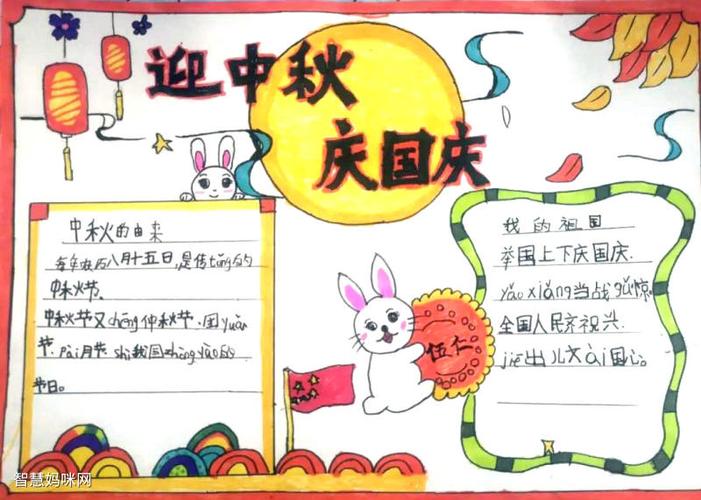 迎中秋
庆国庆
中秋的由来
每年农历八月十五日,是传tǒng的
中秋节、
中秋节又chēng仲秋节、团yuán
节、pài月节、shì我国zhòng yào的
节日。
我的祖国
举国上下庆国庆.
yáo xiǎng当战
全国人民齐祝兴.
jié出儿女ài国心。
伍仁
智慧妈咪网